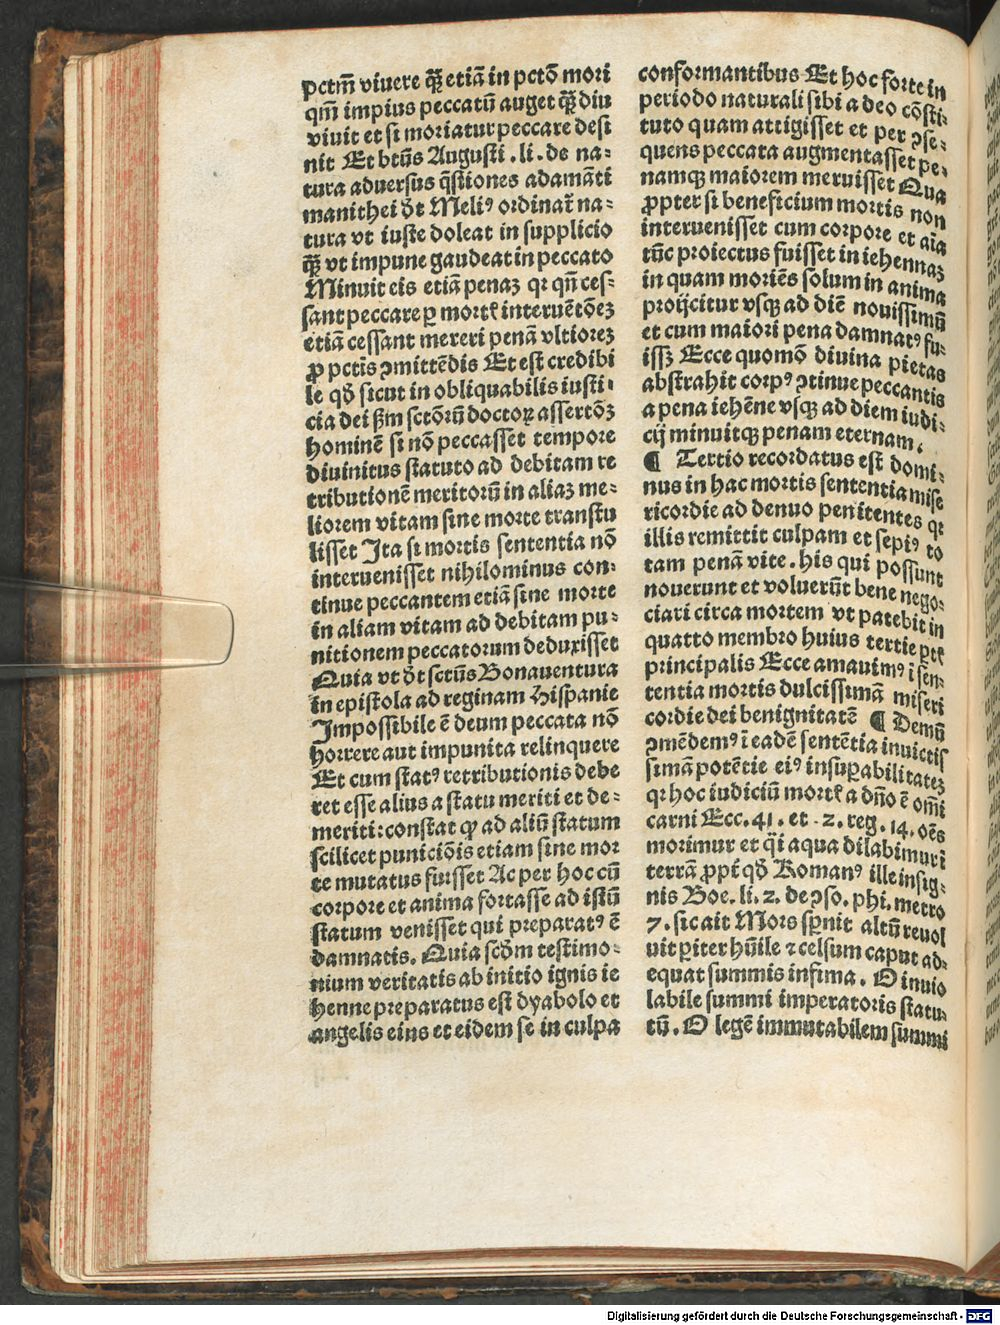 pctm̄ viuere q̄ʒ etiā in pctō mori
qm̄ impius peccatū auget q̄ʒ diu
viuit et si moriatur peccare desi
nit Et btūs Augusti . li . de na⸗
tura aduersus q̄stiones adamāti
manithei d̄t Meliꝰ ordinat̄ na⸗
tura vt iuste doleat in supplicio
q̄ʒ vt impune gaudeat in peccato
Minuit eis etiā penaʒ qꝛ qn̄ ces⸗
sant peccare ꝑ mortꝭ interuētōeʒ
etiā cessant mereri penā vltioreʒ
ꝓ pctīs ꝯmittēdis Et est credibi
le qd̄ sicut in obliquabilis iusti⸗
cia dei ẜm sctōꝝ doctoꝝ assertōʒ
hominē si nō peccasset tempore
diuinitus statuto ad debitam re
tributionē meritorū in aliaʒ me⸗
liorem vitam sine morte transtu
lisset Ita si mortis sententia nō
interuenisset nihilominus con⸗
tinue peccantem etiā sine morte
in aliam vitam ad debitam pu⸗
nitionem peccatorum deduxisset
Quia vt d̄t sctūs Bonauentura
in epistola ad reginam Hispanie
Impossibile ē deum peccata nō
horrere aut impunita relinquere
Et cum statꝰ retributionis debe
ret esse alius a statu meriti et de⸗
meriti: constat ꝙ ad aliū statum
scilicet puniciōis etiam sine mor
te mutatus fuisset Ac per hoc cū
corpore et anima fortasse ad istū
statum venisset qui preparatꝰ ē
damnatis. Quia scd̄m testimo⸗
nium veritatis ab initio ignis ie
henne preparatus est dyabolo et
angelis eius et eidem se in culpa
conformantibus Et hoc forte in
periodo naturali sibi a deo cōsti⸗
tuto quam attigisset et per ꝯse⸗
quens peccata augmentasset pe⸗
namqꝫ maiorem meruisset Qua
ꝓpter si beneficium mortis non
interuenisset cum corpore et aīa
tūc proiectus fuisset in iehennaʒ
in quam moriēs solum in anima
proijcitur vsqꝫ ad diē nouissimū
et cum maiori pena damnatꝰ fu⸗
issʒ Ecce quomō diuina pietas
abstrahit corpꝰ ꝯtinue peccantis
a pena iehēne vsqꝫ ad diem iudi⸗
cij minuitqꝫ penam eternam.
¶ Tertio recordatus est domi⸗
nus in hac mortis sententia mise
ricordie ad denuo penitentes qꝛ
illis remittit culpam et sepiꝰ to
tam penā vite . his qui possunt
nouerunt et voluerūt bene nego⸗
ciari circa mortem vt patebit in
quatto membro huius tertie ptꝭ
principalis Ecce amauimꝰ ī sen⸗
tentia mortis dulcissimā miseri
cordie dei benignitatē ¶ Demū
ꝯmēdemꝰ ī eadē sentētia inuictis
simā potētie eiꝰ insuꝑabilitateʒ
qꝛ hoc iudiciū mortꝭ a dn̄o ē om̄i
carni Ecc. 41. et . 2. reg. 14. oēs
morimur et q̄i aqua dilabimur ī
terrā ꝓpt̄ qd̄ Romanꝰ ille insig⸗
nis Boe. li. 2. de ꝯso. phi. metro
7. sic ait Mors sꝑnit altū reuol
uit ꝑiter hūile ⁊ celsum caput ad⸗
equat summis infima. O inuio
labile summi imperatoris statu⸗
tū . O legē immutabilem summi
Digitalisierung gefördert durch die Deutsche Forschungsgemeinschaft - DFG